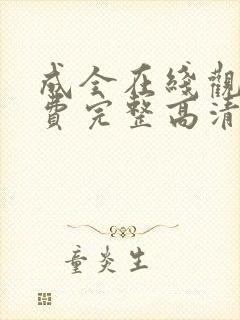 成全在綫觀
費完整高清
童炎生